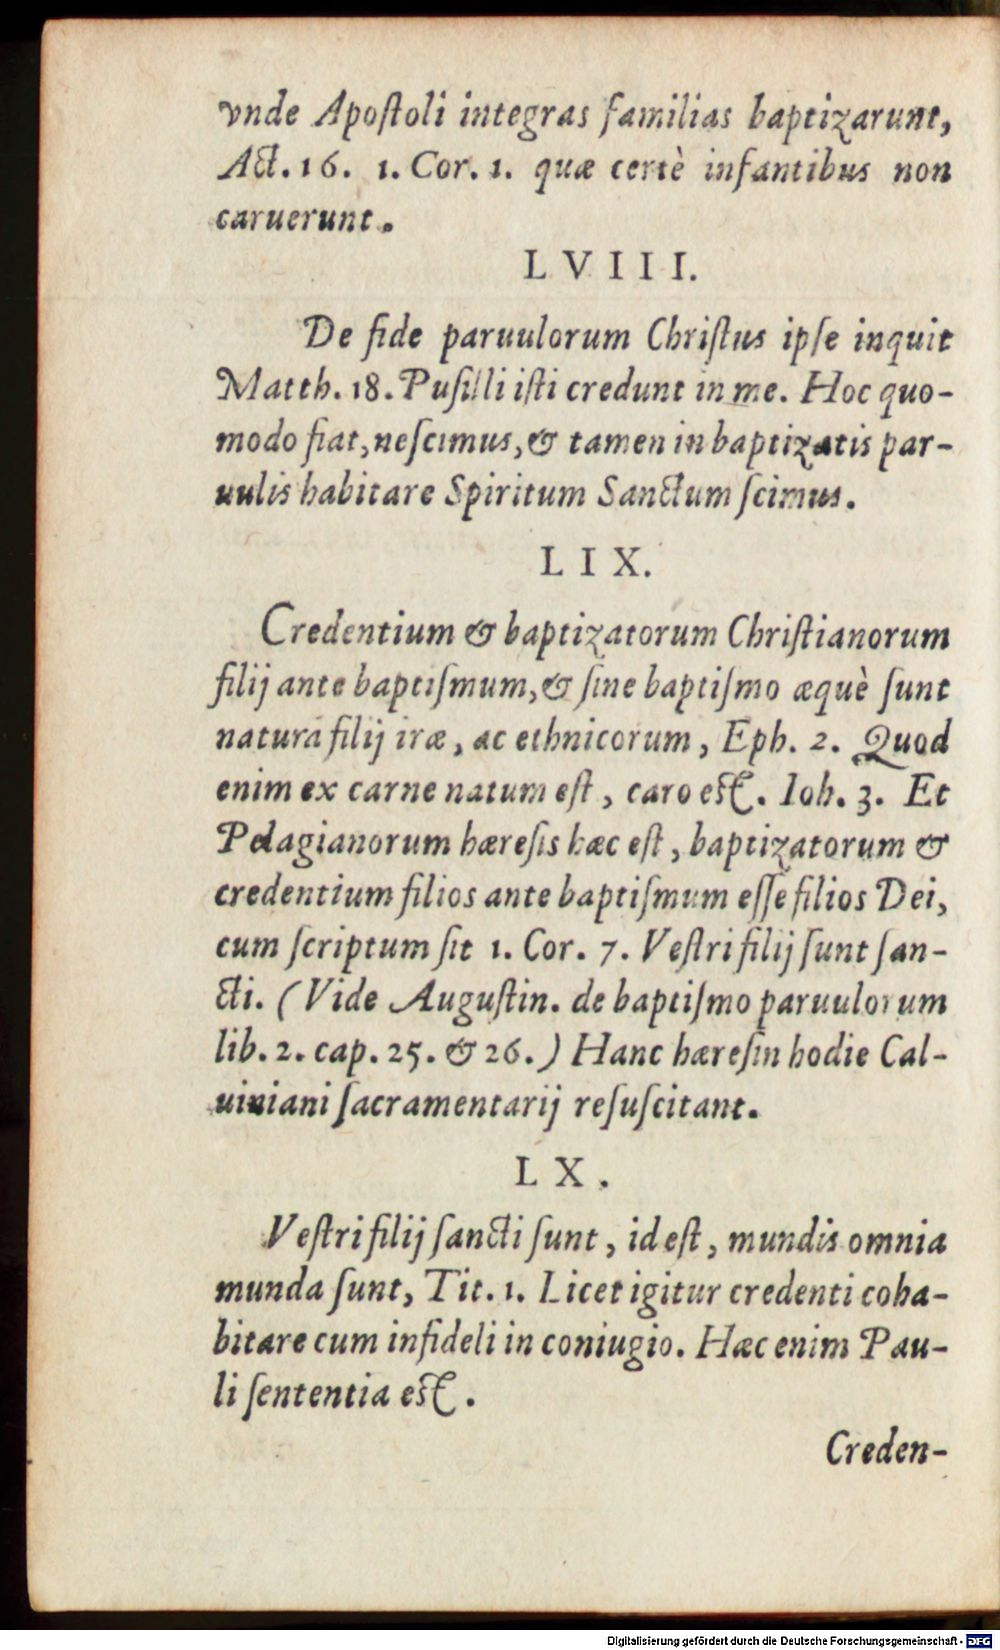 vnde Apoſtoli integras familias baptizarunt,
Act. 16. 1. Cor. 1. quæ certè infantibus non
caruerunt.
LVIII.
De fide paruulorum Chriſtus ipſe inquit
Matth. 18. Puſilli iſti credunt in me. Hoc quo-
modo fiat, neſcimus, & tamen in baptizatis par-
uulis habitare Spiritum Sanctum ſcimus.
LIX.
Credentium & baptizatorum Chriſtianorum
filij ante baptiſmum, & ſine baptiſmo æquè ſunt
naturâ filij iræ, ac ethnicorum, Eph. 2. Quod
enim ex carne natum eſt, caro eſt. Ioh. 3. Et
Pelagianorum hæreſis hæc eſt, baptizatorum &
credentium filios ante baptiſmum eſſe filios Dei,
cum ſcriptum ſit 1. Cor. 7. Veſtri filij ſunt ſan-
cti. (Vide Auguſtin. de baptiſmo paruulorum
lib. 2. cap. 25. & 26.) Hanc hæreſin hodie Cal-
uiniani ſacramentarij reſuſcitant.
LX.
Veſtri filij ſancti ſunt, id eſt, mundis omnia
munda ſunt, Tit. 1. Licet igitur credenti coha-
bitare cum infideli in coniugio. Hæc enim Pau-
li ſententia eſt.
Creden-
Digitalisierung gefördert durch die Deutsche Forschungsgemeinschaft - DFG